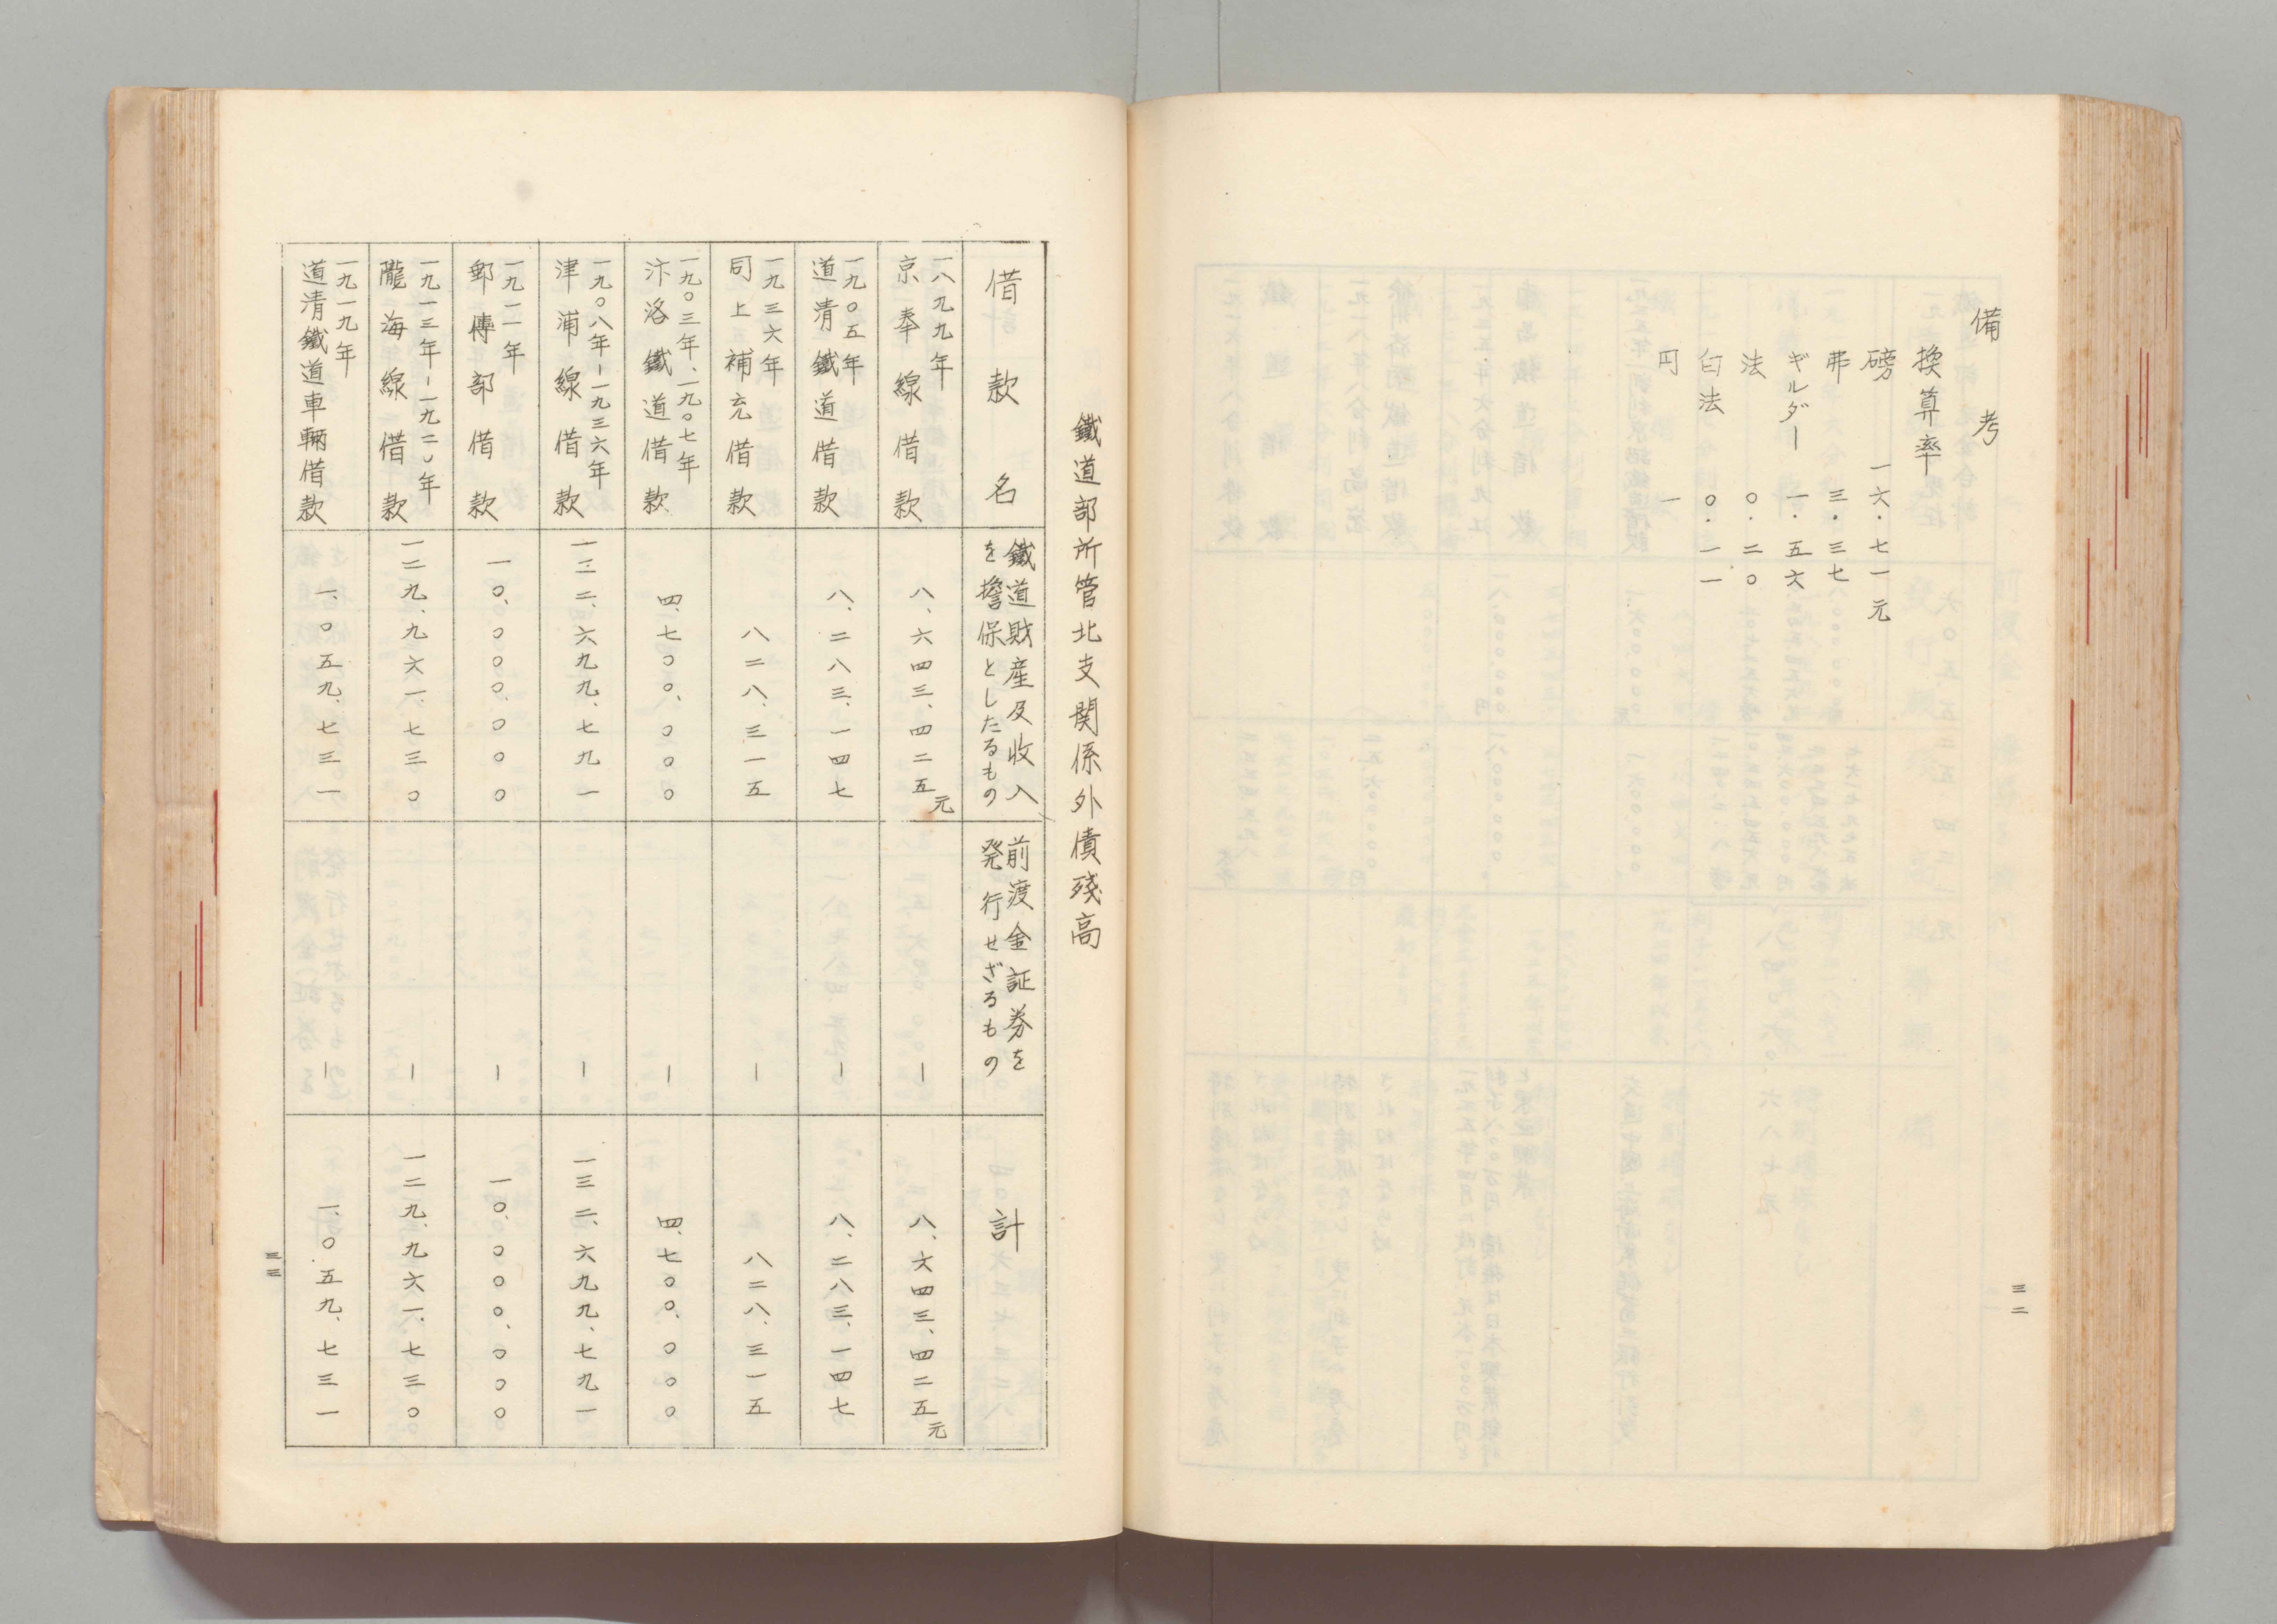 備考
換算率
磅 一六.七一元
弗 三.三七
ギルダー 一.五六
法 〇.二〇
白法 〇.一一
円 一
三二
鐵道部所管北支関係外債残高
借款名
鐵道財産及收入
を擔保としたるもの
前渡金証券を
発行せざるもの
計
一八九九年
京奉線借款
八、六四三、四二五元
—
八、六四三、四二五元
一九〇五年
道清鐵道借款
八、二八三、一四七
—
八、二八三、一四七
一九三六年
同上補充借款
八二八、三一五
—
八二八、三一五
一九〇三年、一九〇七年
汴洛鐵道借款
四、七〇〇、〇〇〇
—
四、七〇〇、〇〇〇
一九〇八年—一九三六年
津浦線借款
一三二、六九九、七九一
—
一三二、六九九、七九一
一九一一年
郵傳部借款
一〇、〇〇〇、〇〇〇
—
一〇、〇〇〇、〇〇〇
一九一三年—一九二〇年
隴海線借款
一二九、九六一、七三〇
—
一二九、九六一、七三〇
一九一九年
道清鐵道車輛借款
一、〇五九、七三一
—
一、〇五九、七三一
三三